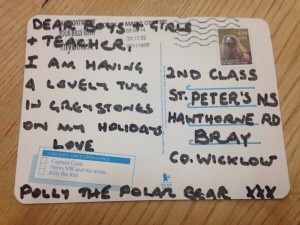 DEAR BOYS + GIRLS
+ TEACHER!
I AM HAVING
A LOVELY TIME
IN GREYSTONES
ON MY HOLIDAYS
LOVE
POLLY THE POLAR BEAR XXX
2ND CLASS
ST. PETER'S N.S
HAWTHORNE RD
BRAY
CO. WICKLOW
Captain Cook
Henry VIII and his wives
Billy the Kid